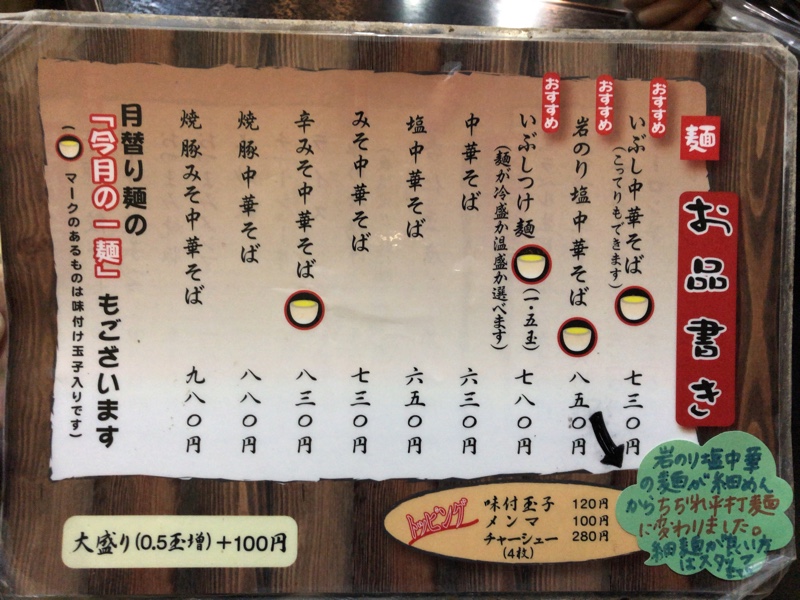 お品書き
麺
おすすめ
いぶし中華そば
(こってりもできます)
七三〇円
おすすめ
岩のり塩中華そば
八五〇円
おすすめ
いぶしつけ麺
(一・五玉)
(麺が冷盛か温盛か選べます)
七八〇円
中華そば
六三〇円
塩中華そば
六五〇円
みそ中華そば
七三〇円
辛みそ中華そば
八三〇円
焼豚中華そば
八八〇円
焼豚みそ中華そば
九八〇円
月替り麺の
「今月の一麺」もございます
( マークのあるものは味付け玉子入りです)
大盛り(0.5玉増)+100円
トッピング
味付玉子 120円
メンマ 100円
チャーシュー 280円
(4枚)
岩のり塩中華
の麺が細めん
からちぢれ平打麺
に変わりました。
細麺が良い方
はスタッフ
まで